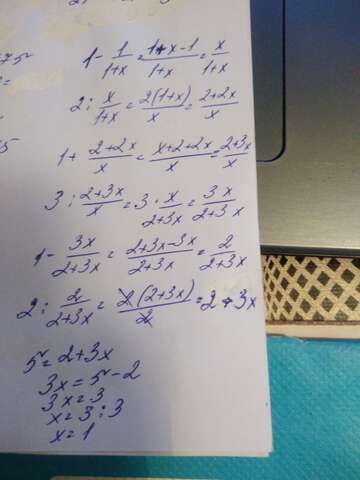 75
=
5
1 - 1/(1+x) = (1+x-1)/(1+x) = x/(1+x)
2 : x/(1+x) = 2(1+x)/x = (2+2x)/x
1 + (2+2x)/x = (x+2+2x)/x = (2+3x)/x
3 : (2+3x)/x = 3 · x/(2+3x) = 3x/(2+3x)
1 - 3x/(2+3x) = (2+3x-3x)/(2+3x) = 2/(2+3x)
2 : 2/(2+3x) = 2(2+3x)/2 = 2+3x
5 = 2+3x
3x = 5-2
3x = 3
x = 3 : 3
x = 1